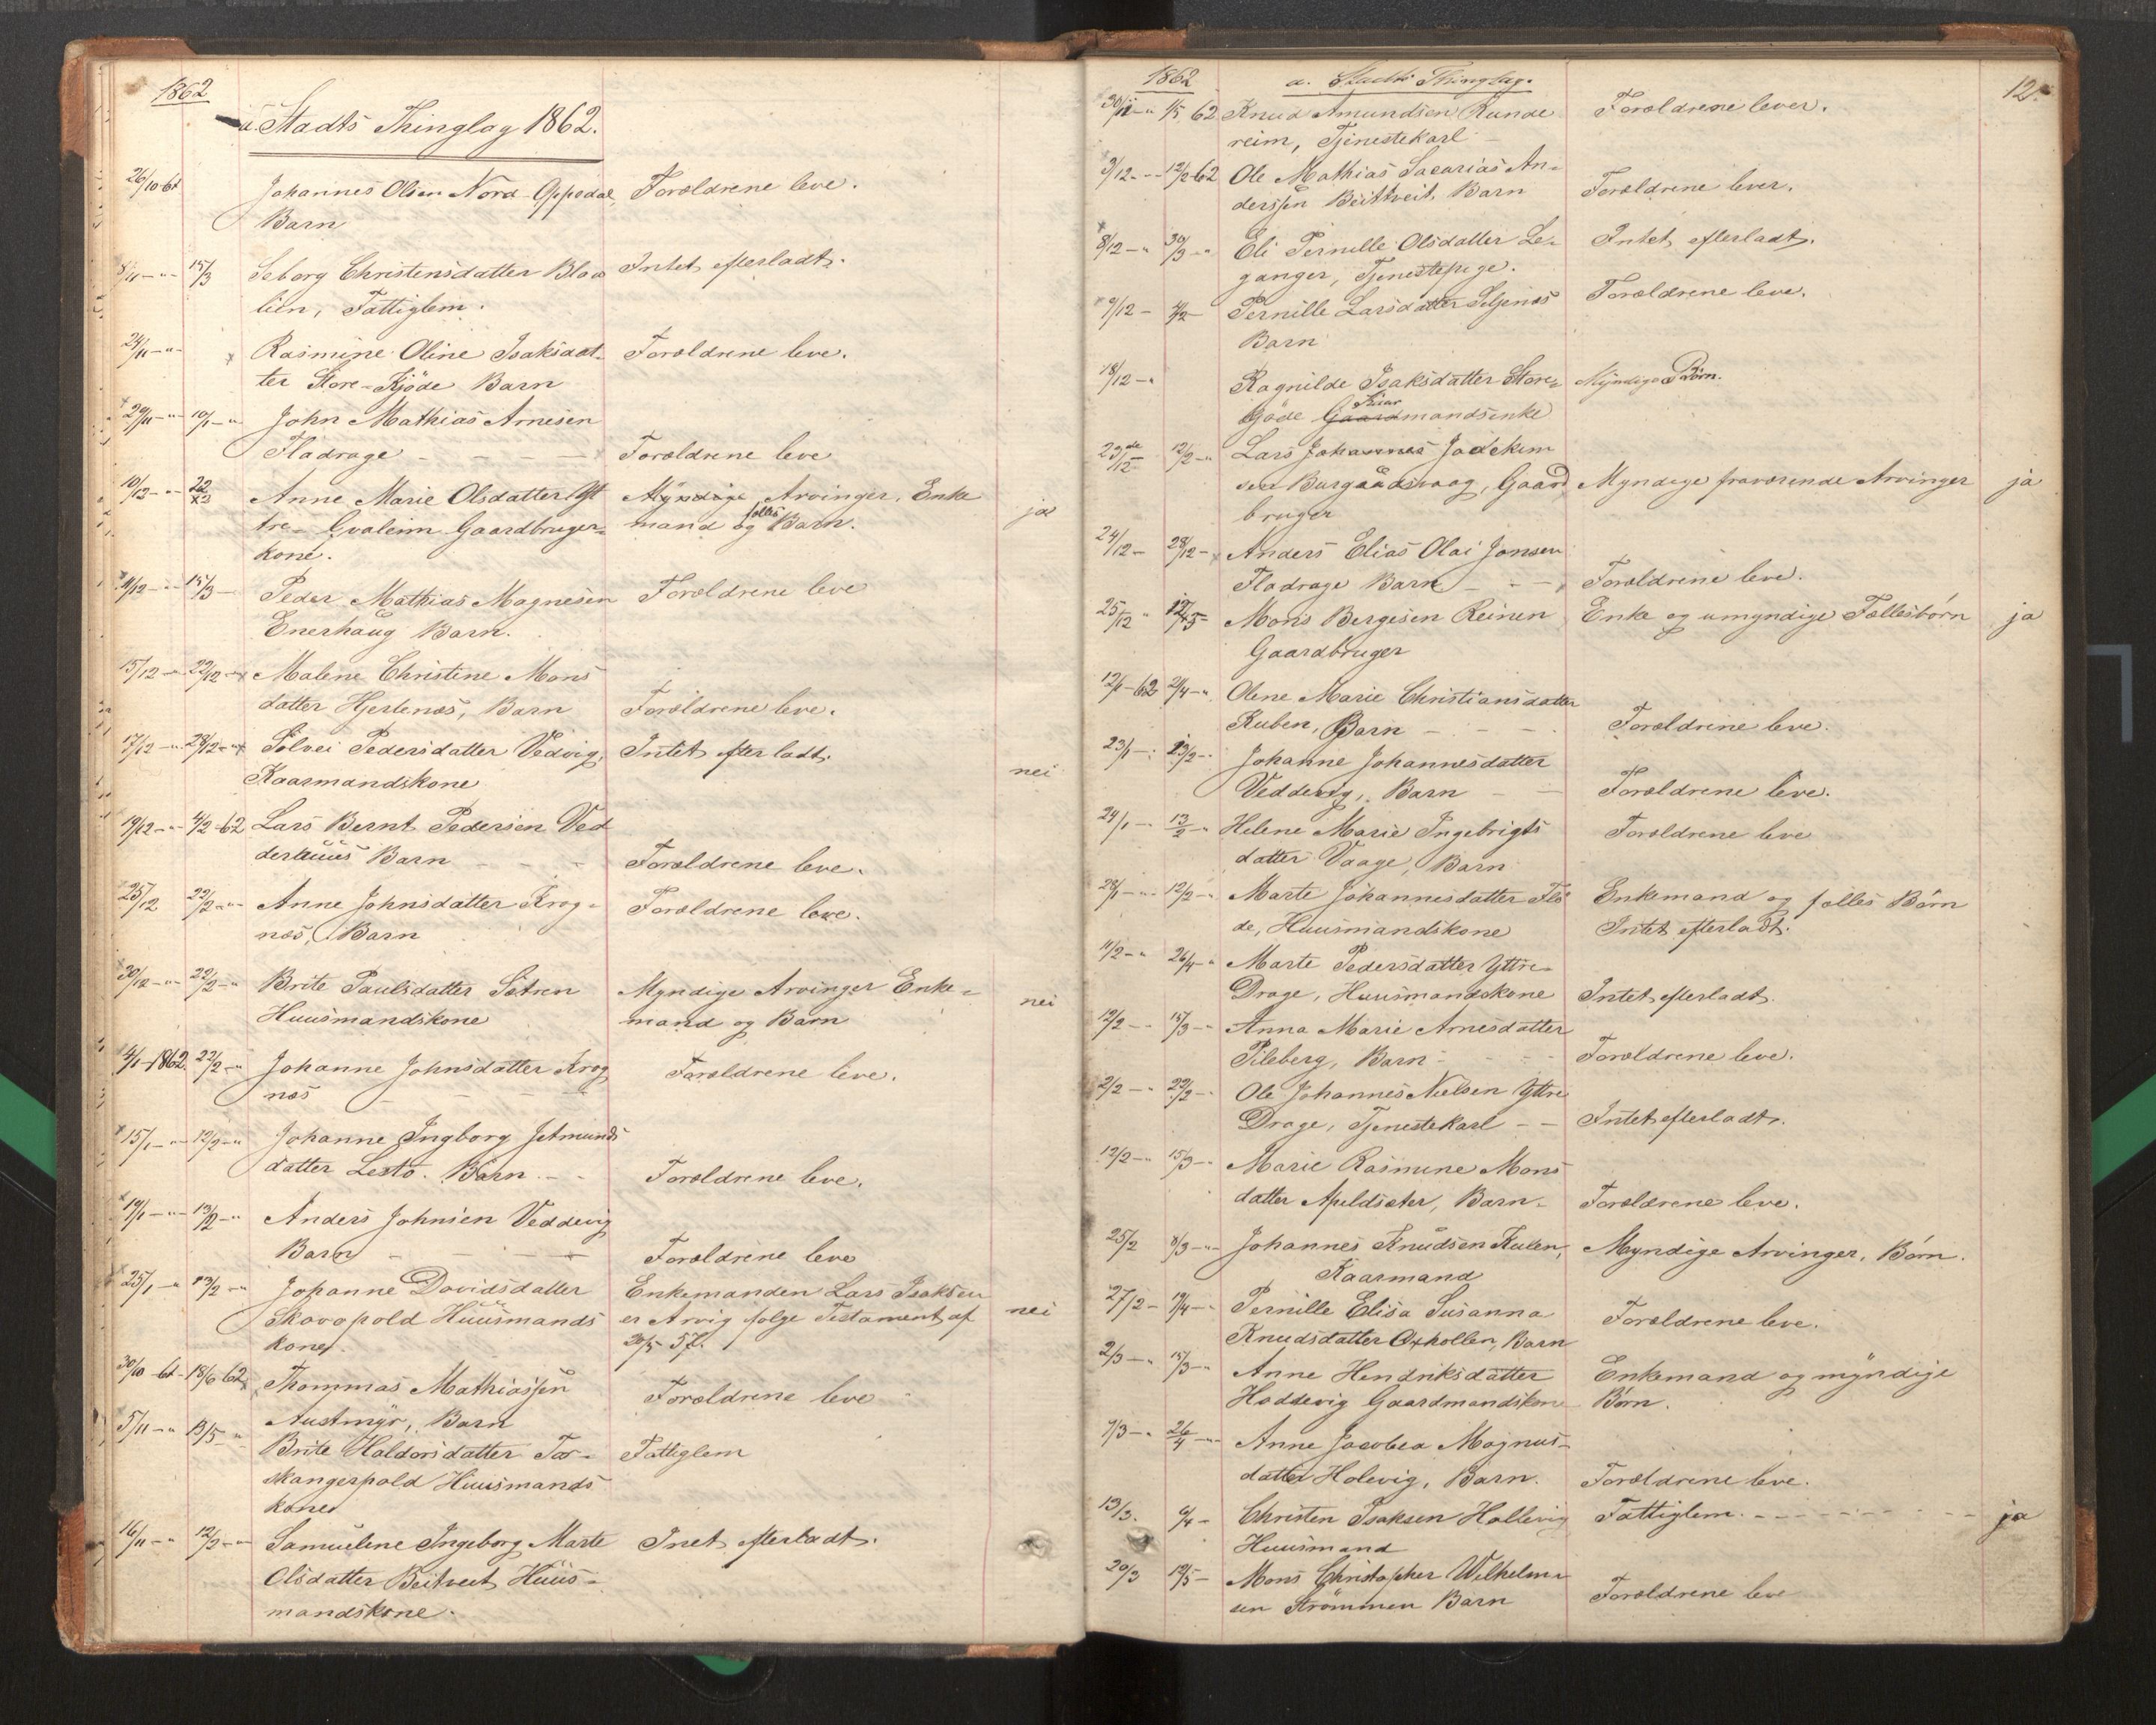 1862
a. Stadts Thinglag 1862.
26/10 61 Johannes Olsen Nord-Oppedal, Forældrene leve.
Barn
8/11 -"- 15/3 Seborg Christensdatter Blaa Intet efterladt.
lien, Fattiglem.
24/11 -"- Rasmine Oline Isaksdat- Forældrene leve.
ter Store-Kjöde Barn
29/11 -"- 10/1 -" John Mathias Arnesen
Fladrage - - - - Forældrene leve
10/12 -"- Anne Marie Olsdatter Yt Myndige Arvinger, Enke ja
tre- Hvaleim Gaardbruger- mand og fælles Barn.
kone.
11/12 -"- 15/3 - Peder Mathias Magnesen Forældrene leve
Enerhaug Barn.
15/12 -"- 22/12 -" Malene Christine Mons
datter Hjertenæs, Barn Forældrene leve.
17/12 -"- 28/12 -" Sölvei Pedersdatter Vedvig, Intet efterladt. nei
Kaarmandskone
19/12 -"- 4/2 -62 Lars Bernt Pedersen Ved
derhuus Barn - - - Forældrene leve.
25/12 22/2 -"- Anne Johnsdatter Krog- Forældrene leve.
næs, Barn
30/12 -"- 22/2 -" Brite Paulsdatter Sætren Myndige Arvinger Enke- nei
Huusmandskone mand og Barn
4/1 -1862. 22/2 -" Johanne Johnsdatter Krog Forældrene leve.
næs - - - -
15/1 -"- 12/2 -" Johanne Ingborg Jetmunds
datter Lestö. Barn. - - Forældrene leve.
19/1 -"- 13/2 -" Anders Johnsen Veddevig
Barn - - - Forældrene leve
25/1 -" 13/2 -" Johanne Davidsdatter Enkemanden Lars Isaksen nei
Skorpold Huusmands er Arvig følge Testament af
kone. 20/5 57.
30/10 -61- 18/6 62 Thommas Mathiassen Forældrene leve
Austmyr, Barn
5/11 -"- 13/5 -" Brite Haldorsdatter Tor- Fattiglem
skangerpold Huusmands
kone
16/11 -"- 12/2 -"- Samuelene Ingeborg Marte Inet efterladt.
Olsdatter Beitveit Huus-
mandskone.
1862 a. Stadts Thinglag. 12.
30/11 -" 1/5 62 Knud Amundsen Runde Forældrene lever.
reim, Tjenestekarl -
3/12 -"- 12/2 -62 Ole Mathias Sacarias An-
derssen Beitveit, Barn Forældrene lever.
8/12 -" 30/3 -" Eli Pernille Olsdatter Le- Intet efterladt.
ganger, Tjenestepige.
9/12 - 4/2 - Pernille Larsdatter Seljenæs Forældrene leve.
Barn
18/12 -" Ragnilde Isaksdatter Store- Myndige Børn.
Kjöde Gaardmandsenke
23de/12 12/2 -" Lars Johannes Joachim
sen Burgaardsvaag, Gaard Myndige fraværende Arvinger ja
bruger
24/12 - 28/12 - Anders Elias Olai Jonsen
Fladrage Barn - - - Forældrene leve.
25/12 " Mons Børgesen Reinen Enke og umyndige Fællesbörn ja
Gaardbruger
12/1 -62 21/4 -" Oline Marie Christiansdatter
Ruben, Barn - - - Forældrene leve.
23/1 -" 23/2 -" Johanne Johannesdatter
Veddevig, Barn - - Forældrene leve.
24/1 -" 13/2 -" Helene Marie Ingebrigts Forældrene leve
datter Vaage, Barn
28/1 -"- 12/2 -" Marte Johannesdatter Flö Enkemand og fælles Börn
de, Huusmandskone Intet efterladt.
11/2 -" 26/4 -" Marte Pedersdatter Yttre-
Drage, Huusmandskone Intet efterladt.
12/2 -" 15/3 -" Anna Marie Arnesdatter
Pileberg, Barn - - - - Forældrene leve.
2/2 -" 22/2 -" Ole Johannes Nielsen Yttre
Drage, Tjenestekarl - - Intet efterladt.
12/2 -" 15/3 -" Marie Rasmine Mons
datter Apeldsæter, Barn - Forældrene leve.
25/2 8/3 -"- Johannes Knudsen Ruben, Myndige Arvinger, Børn.
Kaarmand
27/2 - 19/4 -" Pernille Elisa Susanna Forældrene leve.
Knudsdatter Oxhollen, Barn
2/3 -" 15/3 -" Anne Hendriksdatter Enkemand og myndige
Hoddevig Gaardmandskone Börn.
7/3 -" 26/4 -"- Anne Jacobea Magnus-
datter Holevig, Barn. Forældrene leve.
13/3. 6/4 - Christen Isaksen Hollevig Fattiglem. - - - - - ja
Huusmand
20/3 19/5 - Mons Christopher Wilhelm-
sen Strömmen Barn Forældrene leve